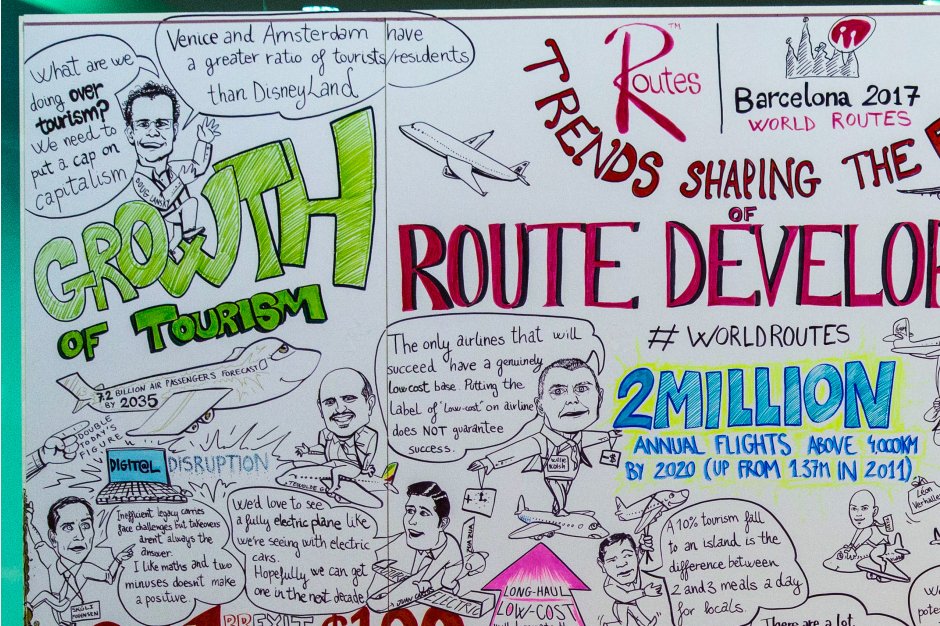 What are we
doing over
tourism?
We need to
put a cap on
capitalism
Venice and Amsterdam have
a greater ratio of tourists/residents
than DisneyLand
DOUG LANSKY
GROWTH
OF TOURISM
7.2 BILLION AIR PASSENGERS FORECAST
BY 2035
DOUBLE
TODAY'S
FIGURE
DIGITAL DISRUPTION
Inefficient legacy carriers
face challenges but takeovers
aren't always the
answer.
I like maths and two
minuses doesn't make
a positive.
SKÚLI
MOGENSEN
We'd love to see
a fully electric plane like
we're seeing with electric
cars.
Hopefully we can get
one in the next decade
Routes
TM
Barcelona 2017
WORLD ROUTES
TRENDS SHAPING THE
OF
ROUTE DEVELOP
#WORLDROUTES
The only airlines that will
succeed have a genuinely
low cost base. Putting the
Label of "Low-cost" on airline
does NOT guarantee
success.
WILLIE
WALSH
2 MILLION
ANNUAL FLIGHTS ABOVE 4,000KM
BY 2020 (UP FROM 1.37M IN 2011)
LONG-HAUL
LOW-COST
A 10% tourism fall
to an island is the
difference between
2 and 3 meals a day
for locals.
There are a lot
Léon
Verhallen
BREXIT $100